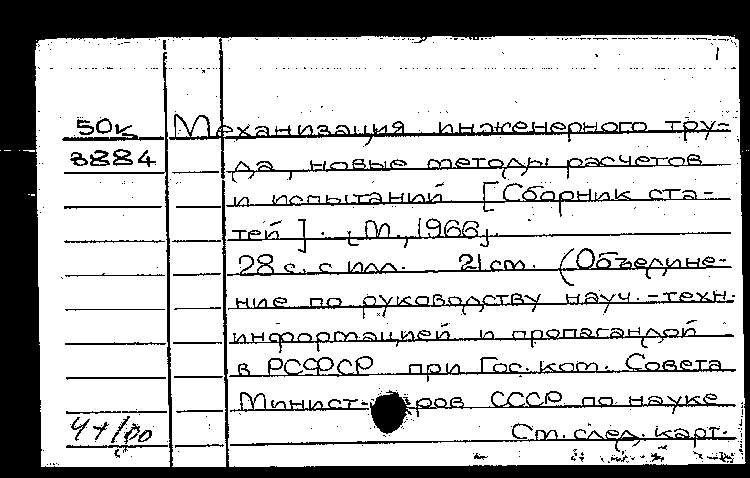 50к Механизация инженерного тру-
3884 да, новые методы расчетов
и испытаний [Сборник ста-
тей]. [М., 1966].
28 с. с илл. 21 см. (Объедине-
ние по руководству науч.-техн.
информацией и пропагандой
в РСФСР при Гос. ком. Совета
Минист-ров СССР по науке
См. след. карт.